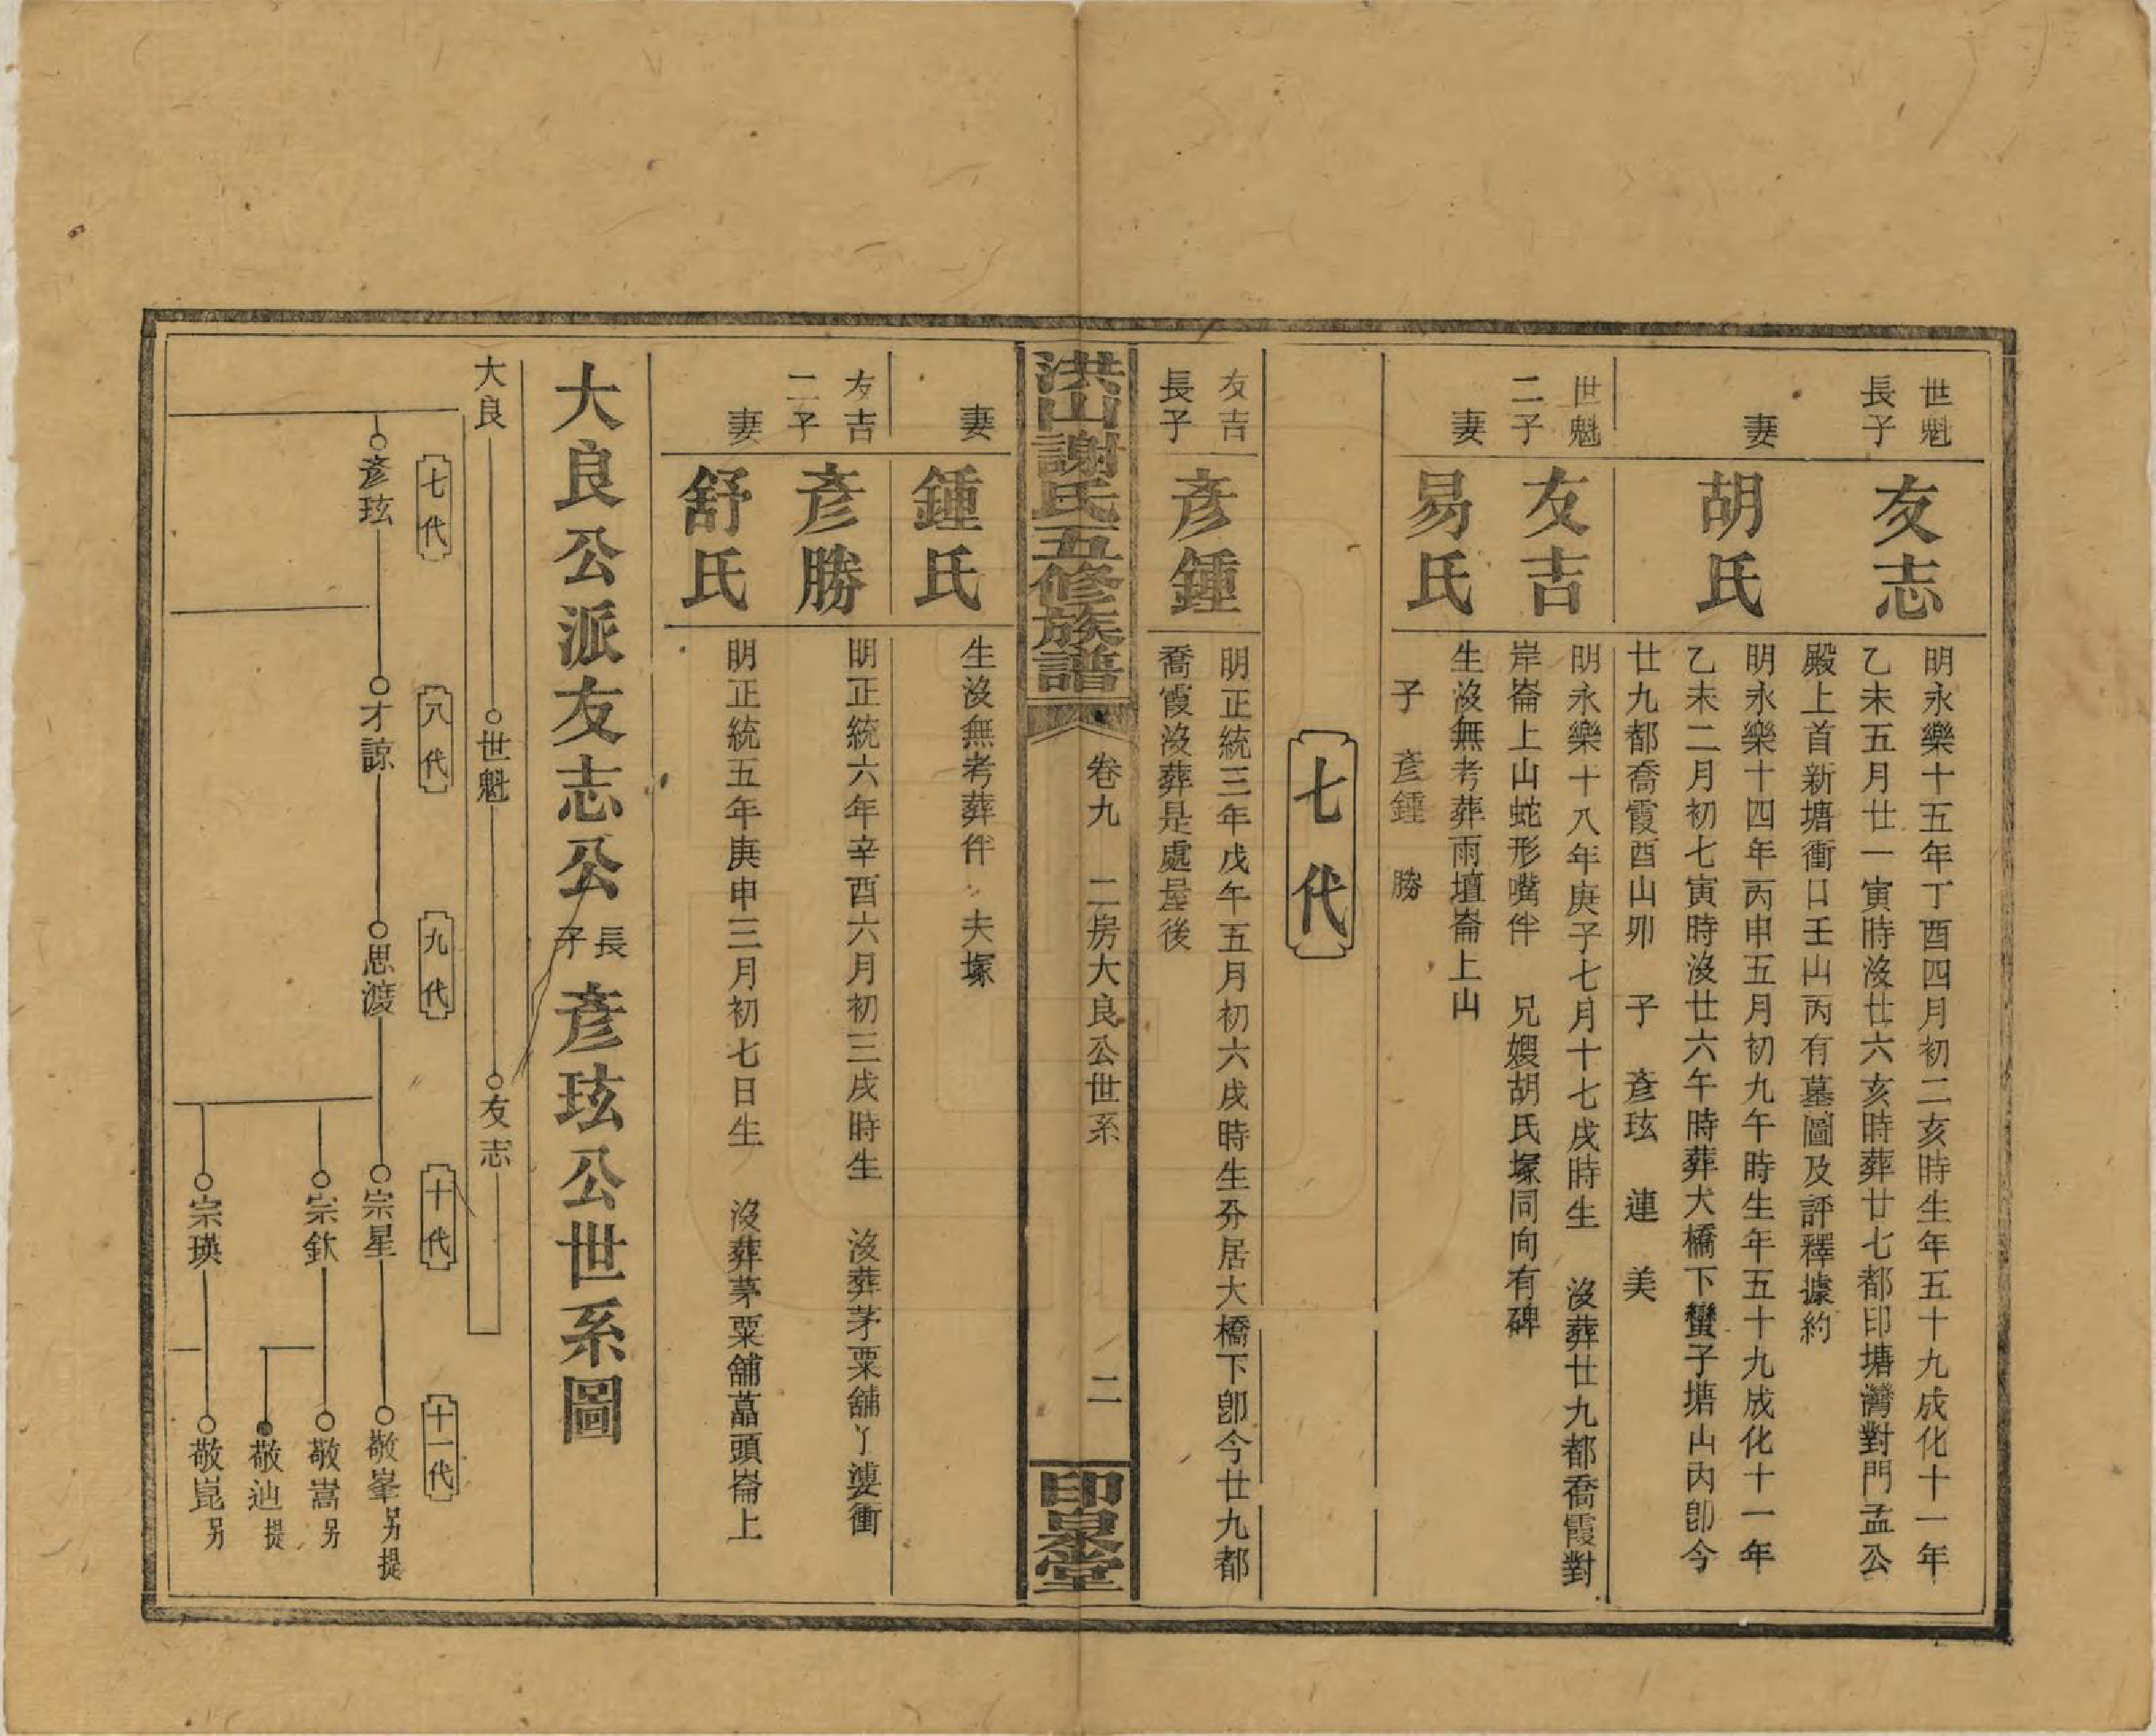 世魁
長子
友志
明永樂十五年丁酉四月初二亥時生年五十九成化十一年
乙未五月廿一寅時沒廿六亥時葬廿七都印塘灣對門孟公
殿上首新塘衝口壬山丙有墓圖及評釋據約
妻
胡氏
明永樂十四年丙申五月初九午時生年五十九成化十一年
乙未二月初七寅時沒廿六午時葬大橋下蠻子塘山內卽今
廿九都喬霞酉山卯 子 彥玹 連 美
世魁
二子
友吉
明永樂十八年庚子七月十七戌時生 沒葬廿九都喬霞對
岸崙上山蛇形嘴伴 兄嫂胡氏塚同向有碑
妻
易氏
生沒無考葬雨壇崙上山
子 彥鍾 勝
七代
友吉
長子
彥鍾
明正統三年戊午五月初六戌時生分居大橋下卽今廿九都
喬霞沒葬是處屋後
洪山謝氏五修族譜
卷九 二房大良公世系
二
印泉堂
妻
鍾氏
生沒無考葬伴 夫塚
友吉
二子
彥勝
明正統六年辛酉六月初三戌時生 沒葬茅栗舖丫婆衝
妻
舒氏
明正統五年庚申三月初七日生 沒葬茅栗舖藠頭崙上
大良公派友志公長子彥玹公世系圖
大良
世魁
友志
七代
八代
九代
十代
十一代
彥玹
才諒
思渡
宗星
敬峯另提
宗欽
敬嵩另
敬辿提
宗瑛
敬崑另